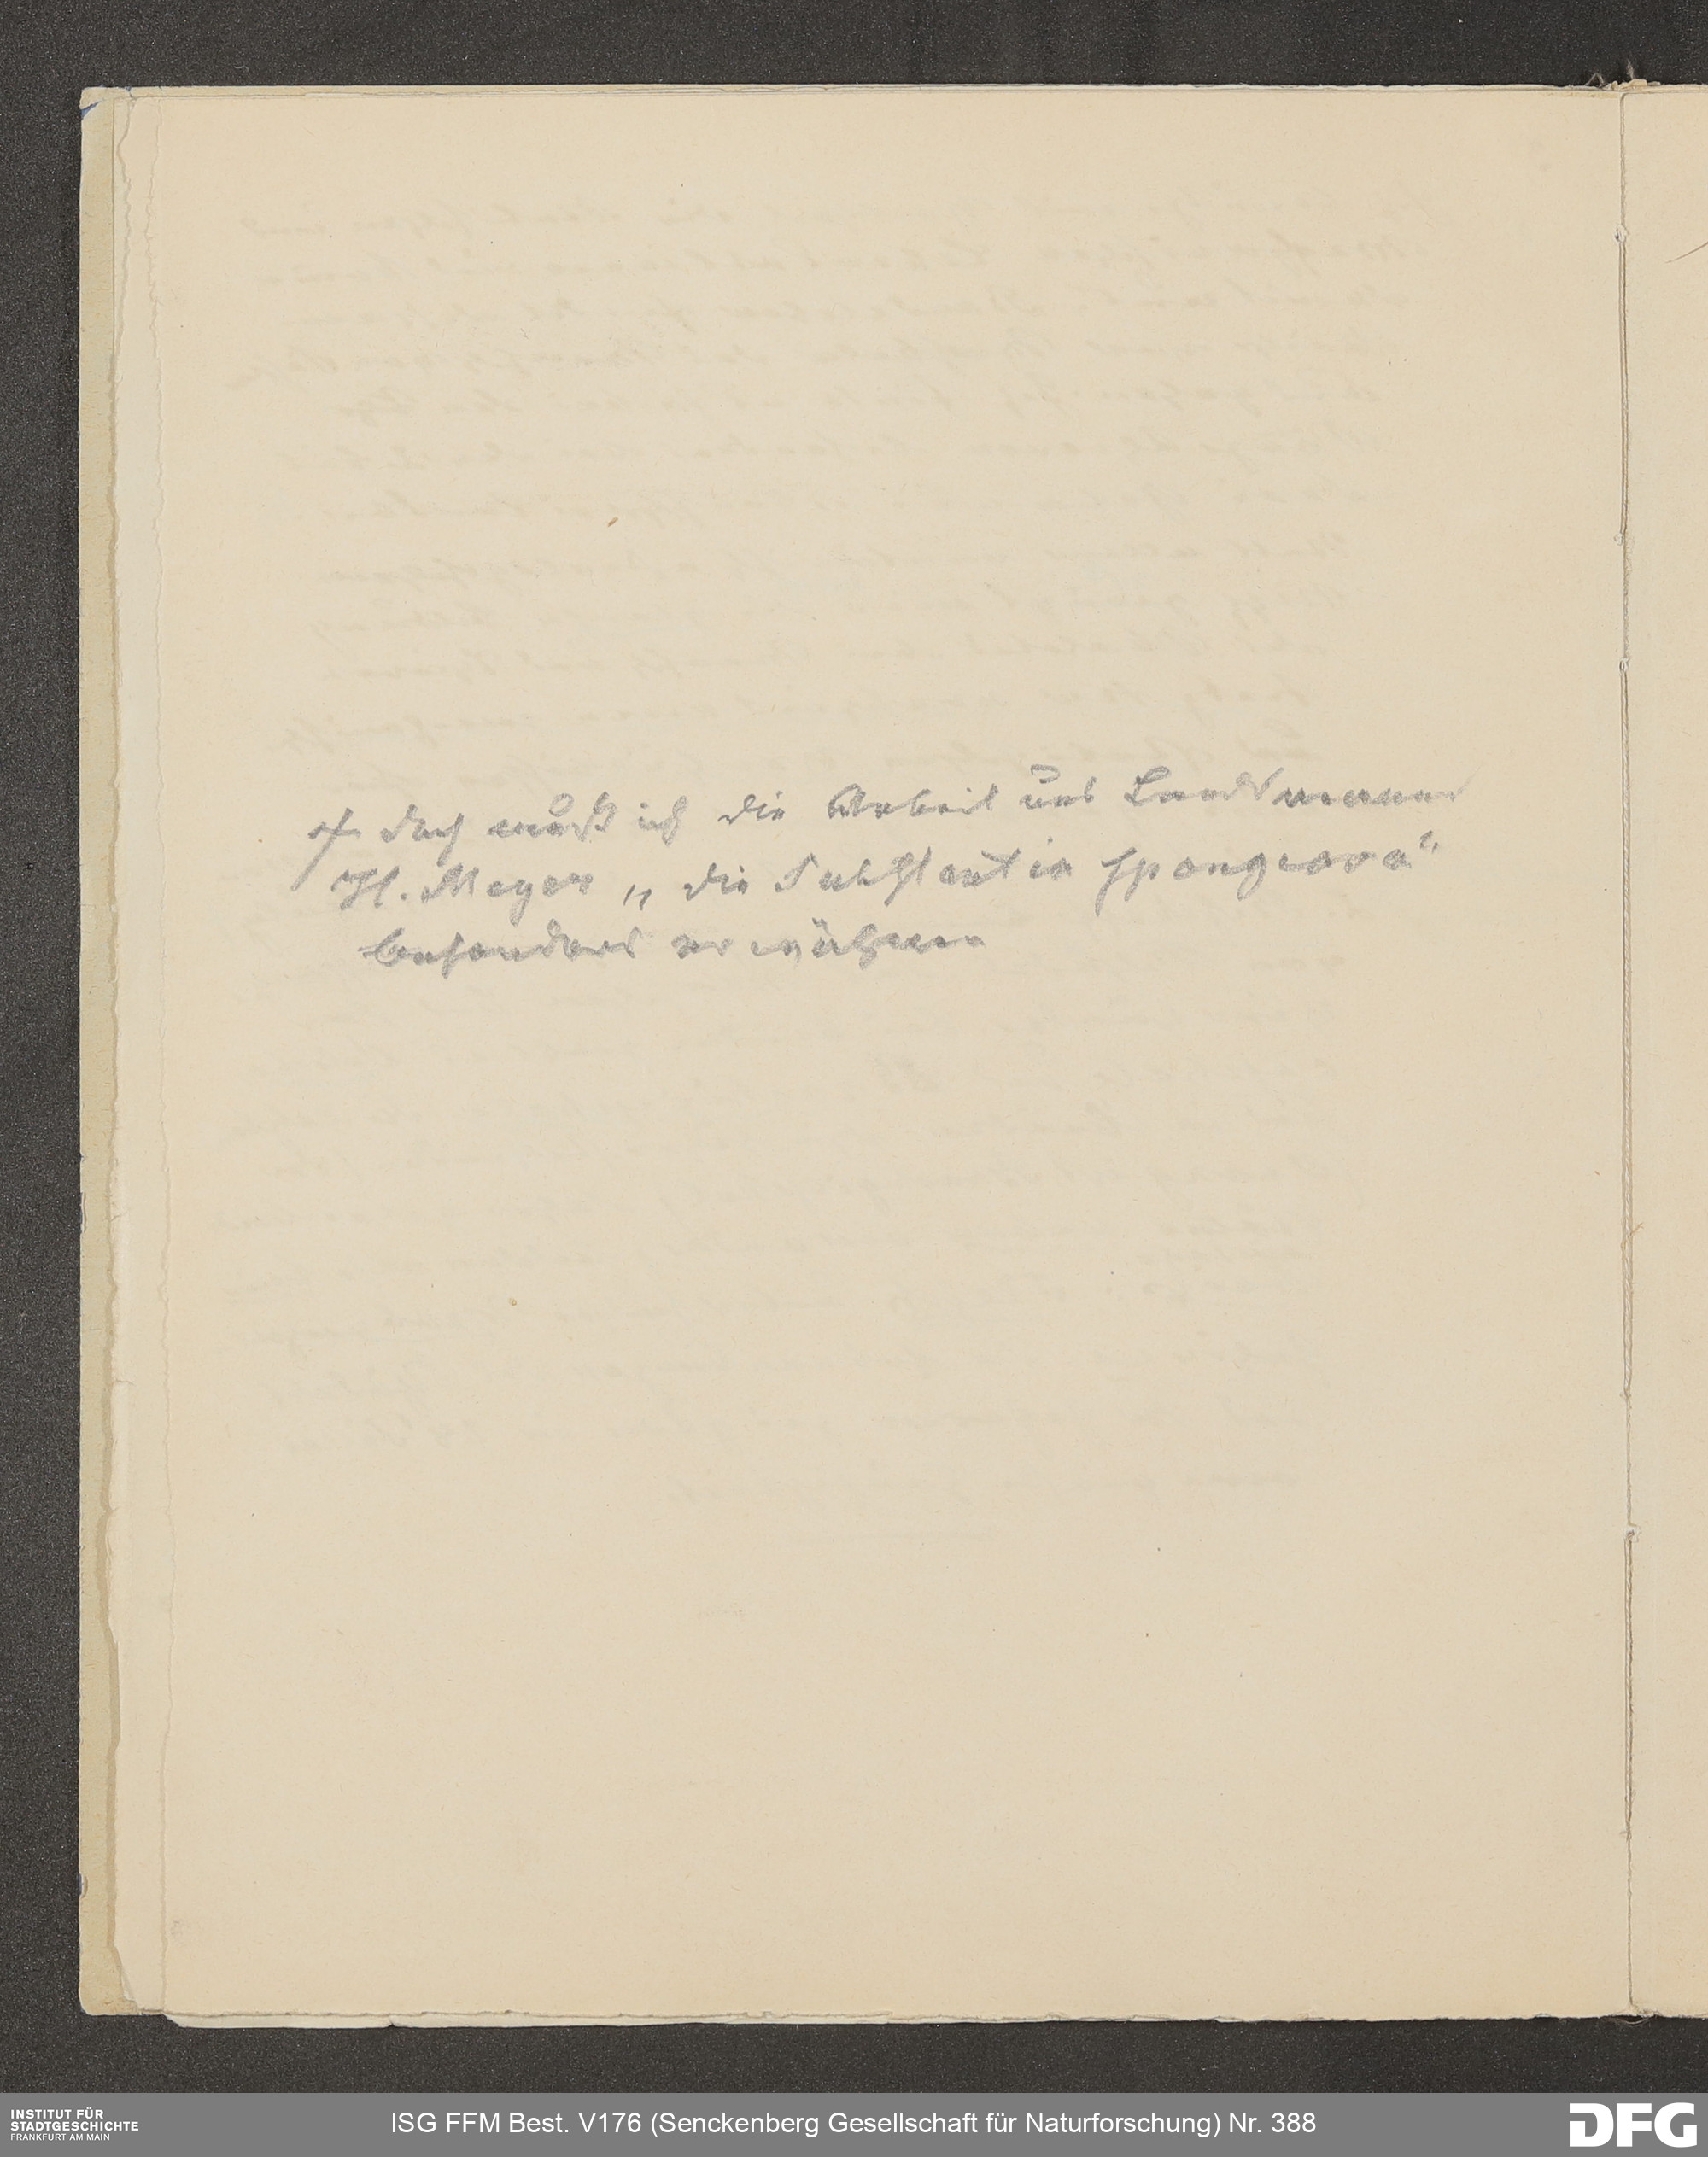 doch muß ich die Arbeit uns Landsmann
H. Meyer „die Substantia spongiosa“
besonders erwähnen
INSTITUT FÜR
STADTGESCHICHTE
FRANKFURT AM MAIN
ISG FFM Best. V176 (Senckenberg Gesellschaft für Naturforschung) Nr. 388
DFG